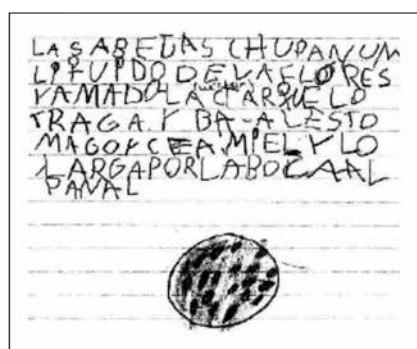 LAS ABEJAS CHUPAN UN
LIFUIDO DE LAFLORES
YAMADO LACTAR QUE LO
TRAGA. Y BA-A LESTO
MAGO YCEA MIEL Y LO
LARGA POR LA BOCA AL
PANAL